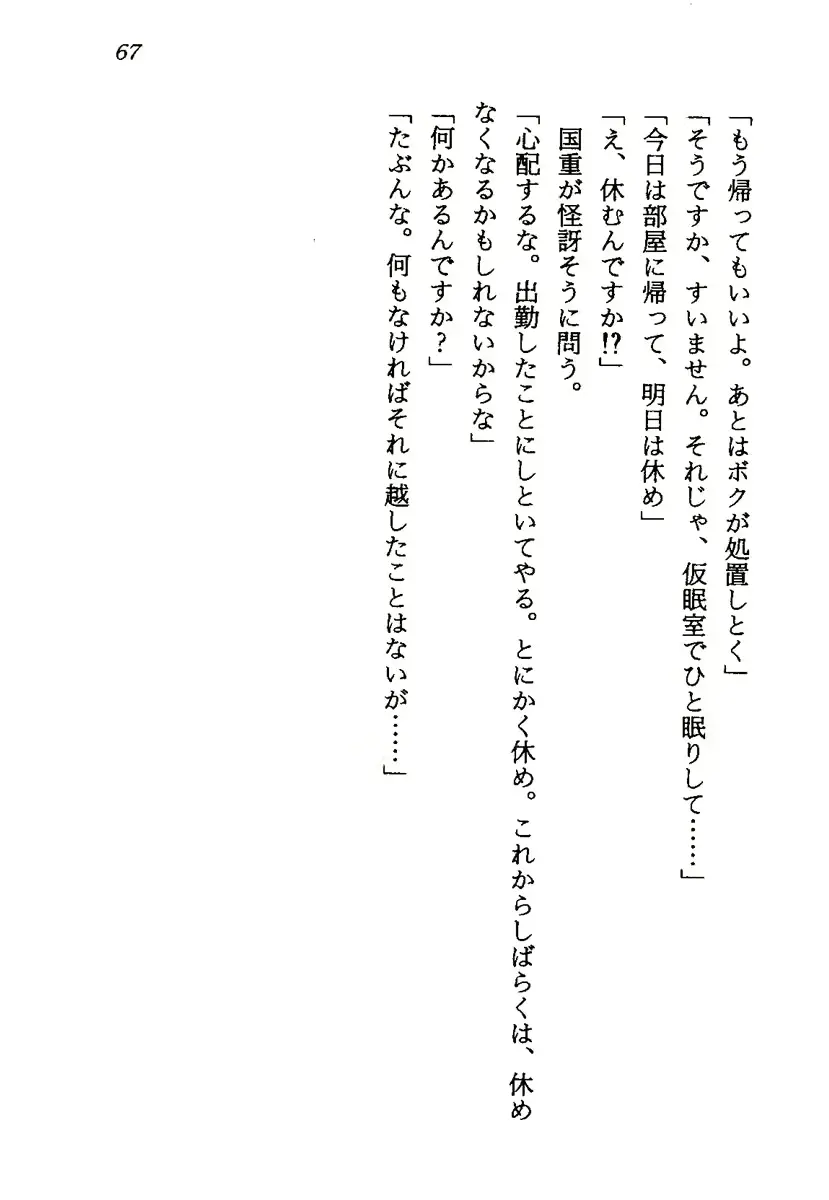 67
「もう帰ってもいいよ。あとはボクが処置しとく」
「そうですか、すいません。それじゃ、仮眠室でひと眠りして……」
「今日は部屋に帰って、明日は休め」
「え、休むんですか!?」
　国重が怪訝そうに問う。
「心配するな。出勤したことにしといてやる。とにかく休め。これからしばらくは、休め
なくなるかもしれないからな」
「何かあるんですか？」
「たぶんな。何もなければそれに越したことはないが……」